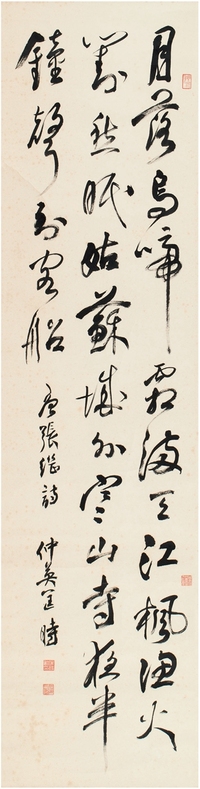 月落烏啼霜滿天江楓漁火
對愁眠姑蘇城外寒山寺夜半
鐘聲到客船 唐張繼詩 仲英匡時